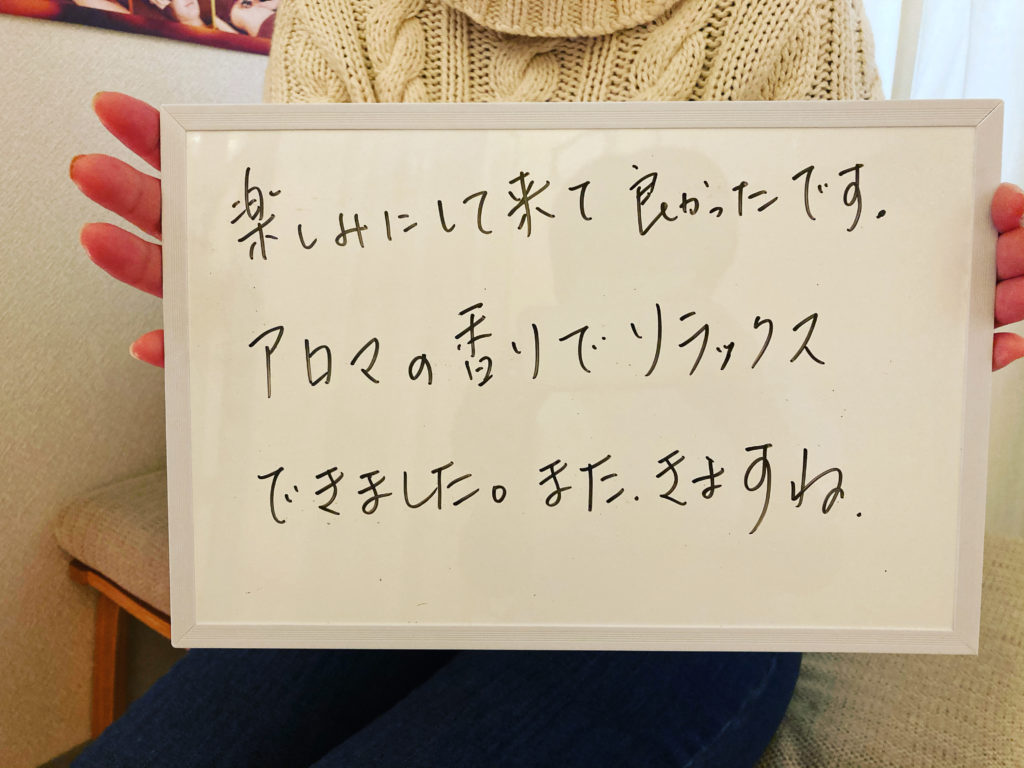 楽しみにして来て良かったです。
アロマの香りでリラックス
できました。また、きますね.